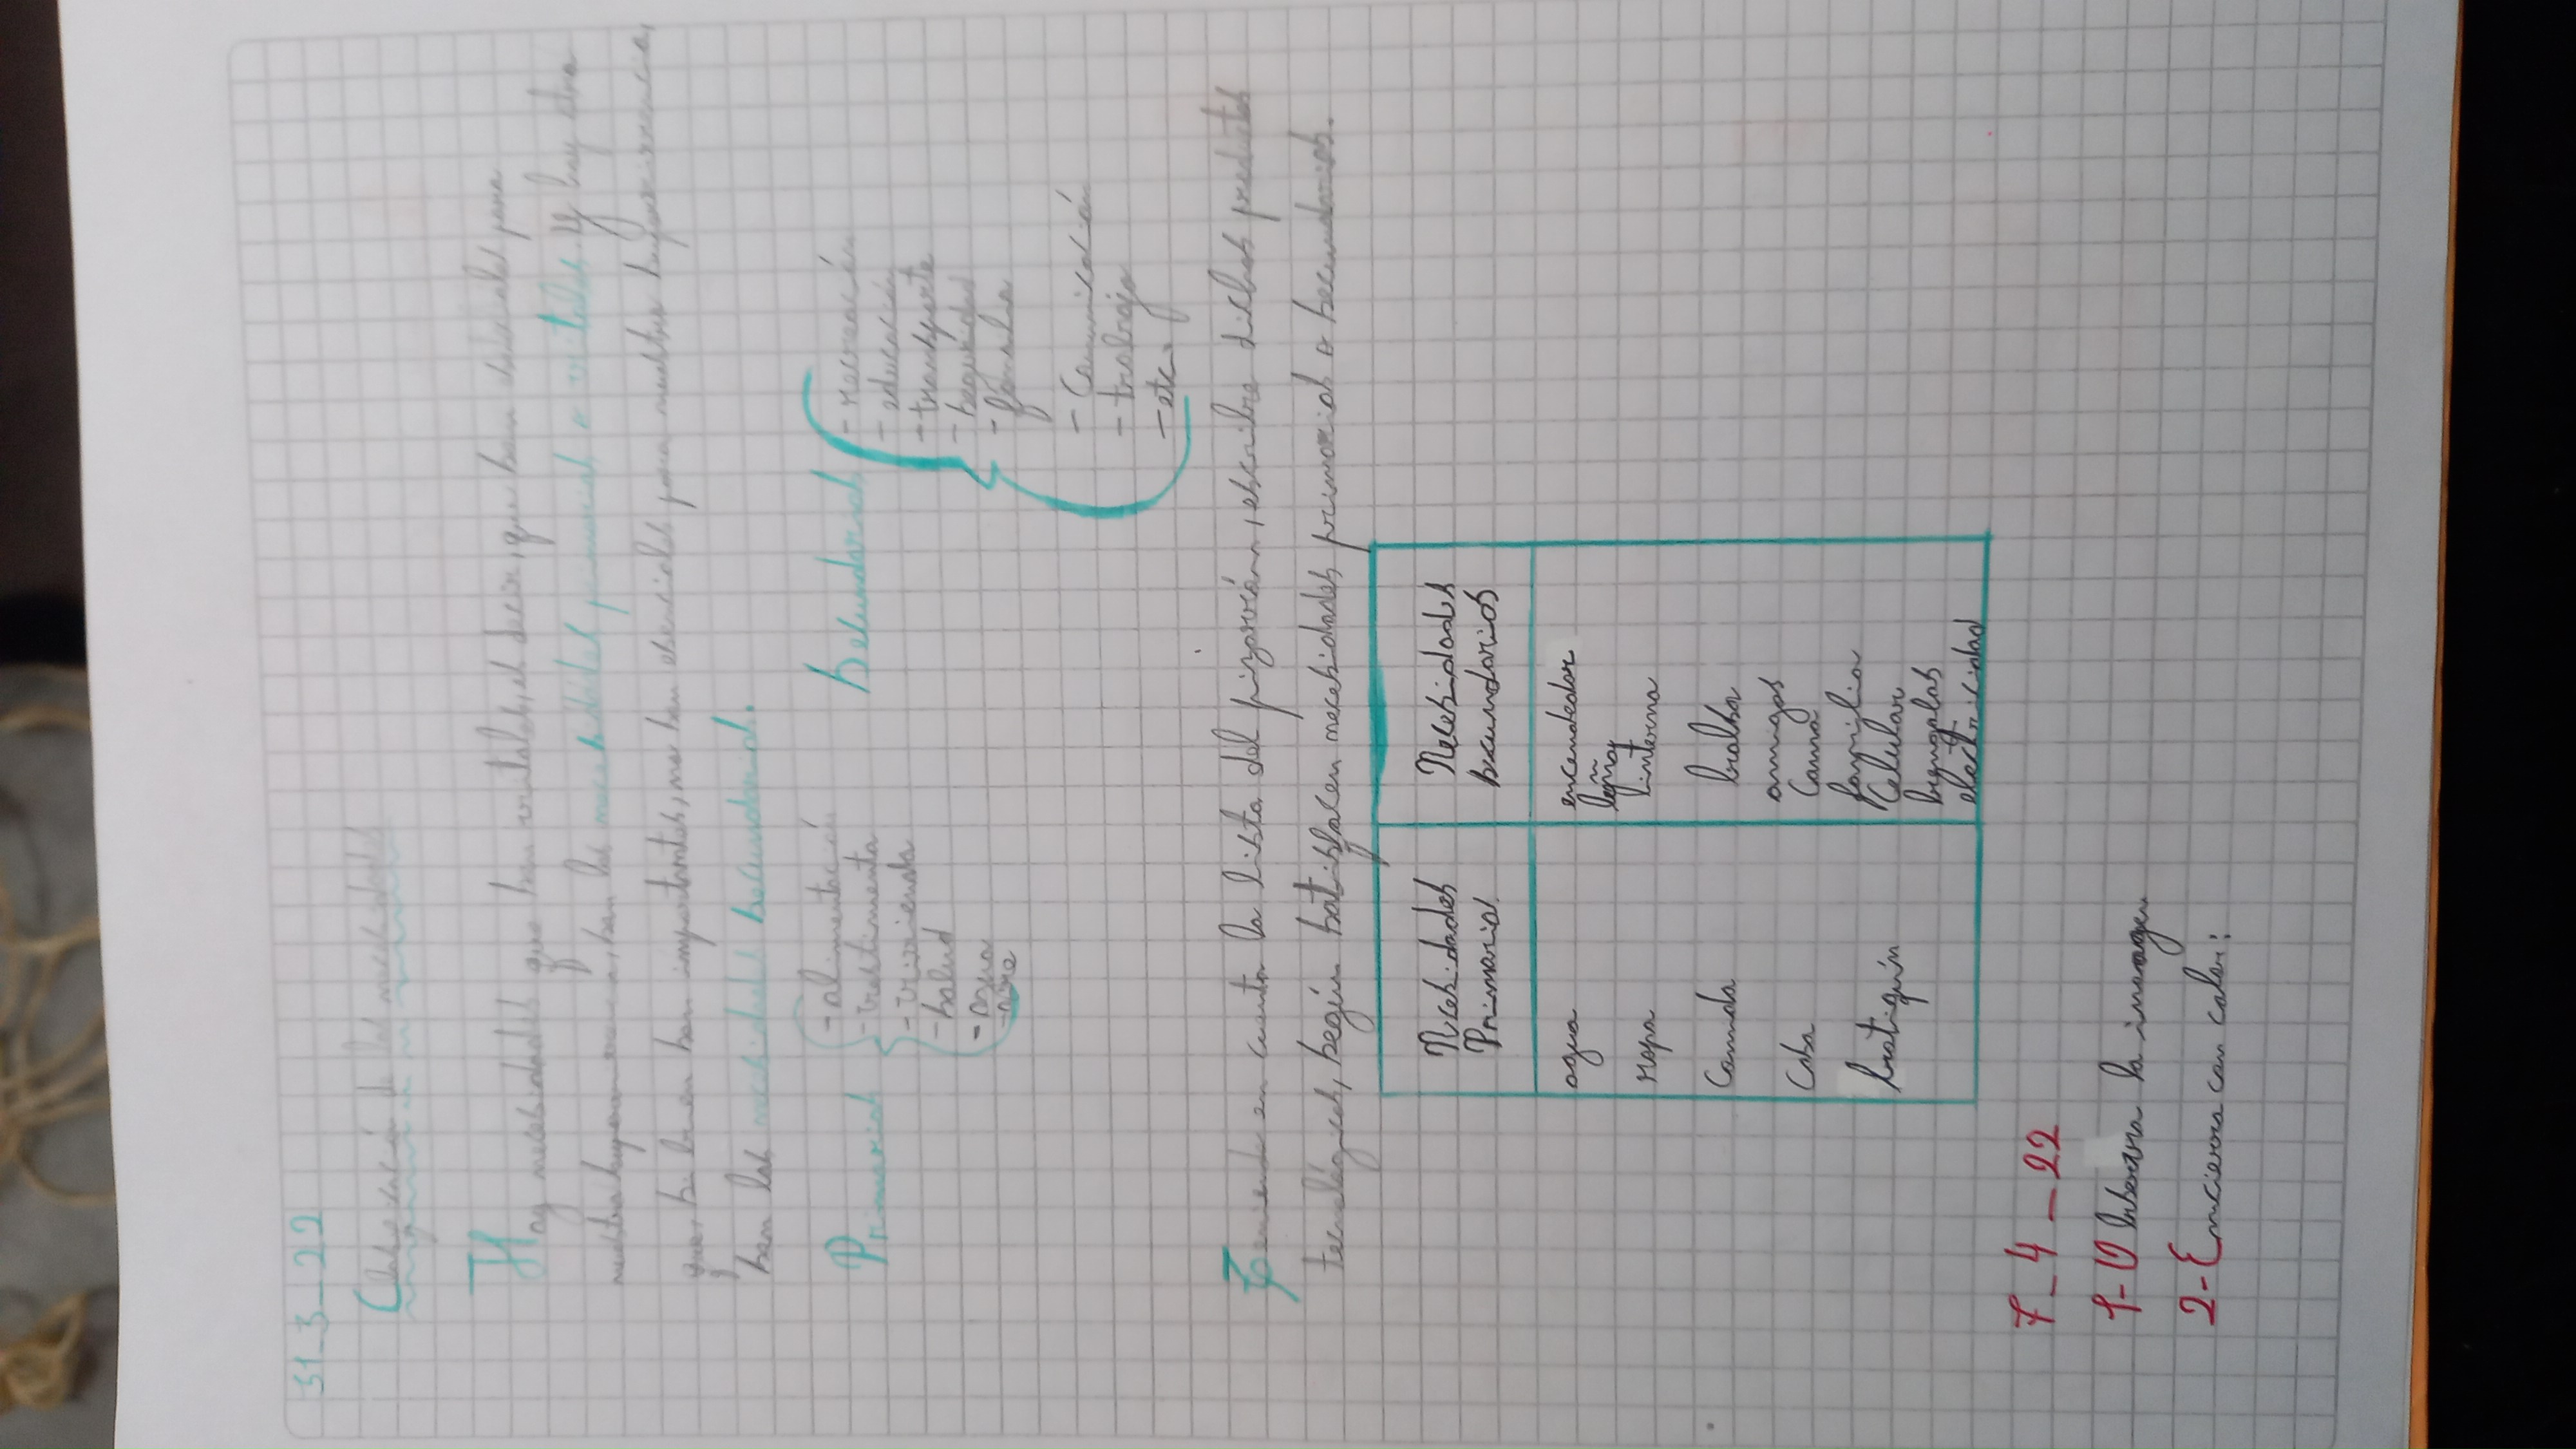 31-3-22
Clasificación de las necesidades
Hay necesidades que son vitales, es decir, que son esenciales para
nuestra supervivencia, son las necesidades primarias o vitales. Y hay otra
que, si bien son importantes, no son esenciales para nuestra supervivencia,
son las necesidades secundarias.
Primarias
- alimentación
- vestimenta
- vivienda
- salud
- agua
- aire
secundarias
- recreación
- educación
- transporte
- seguridad
- familia
- Comunicación
- trabajo
- etc.
Teniendo en cuenta la lista del pizarrón, escribe dichos productos
tecnológicos, según satisfacen necesidades primarias o secundarias.
Necesidades Primarias
Necesidades secundarias
agua
ropa
Comida
Casa
botiquín
encendedor
leña
linterna
bolsa
amigos
Cama
familia
Celular
bengalas
electricidad
7-4-22
1- Observa la imagen
2- Encierra con color: